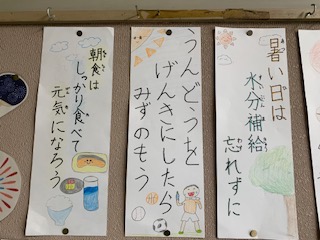 暑い日は
水分補給
忘れずに
うんどうを
げんきにしたら
みずのもう
朝食は
しっかり食べて
元気になろう